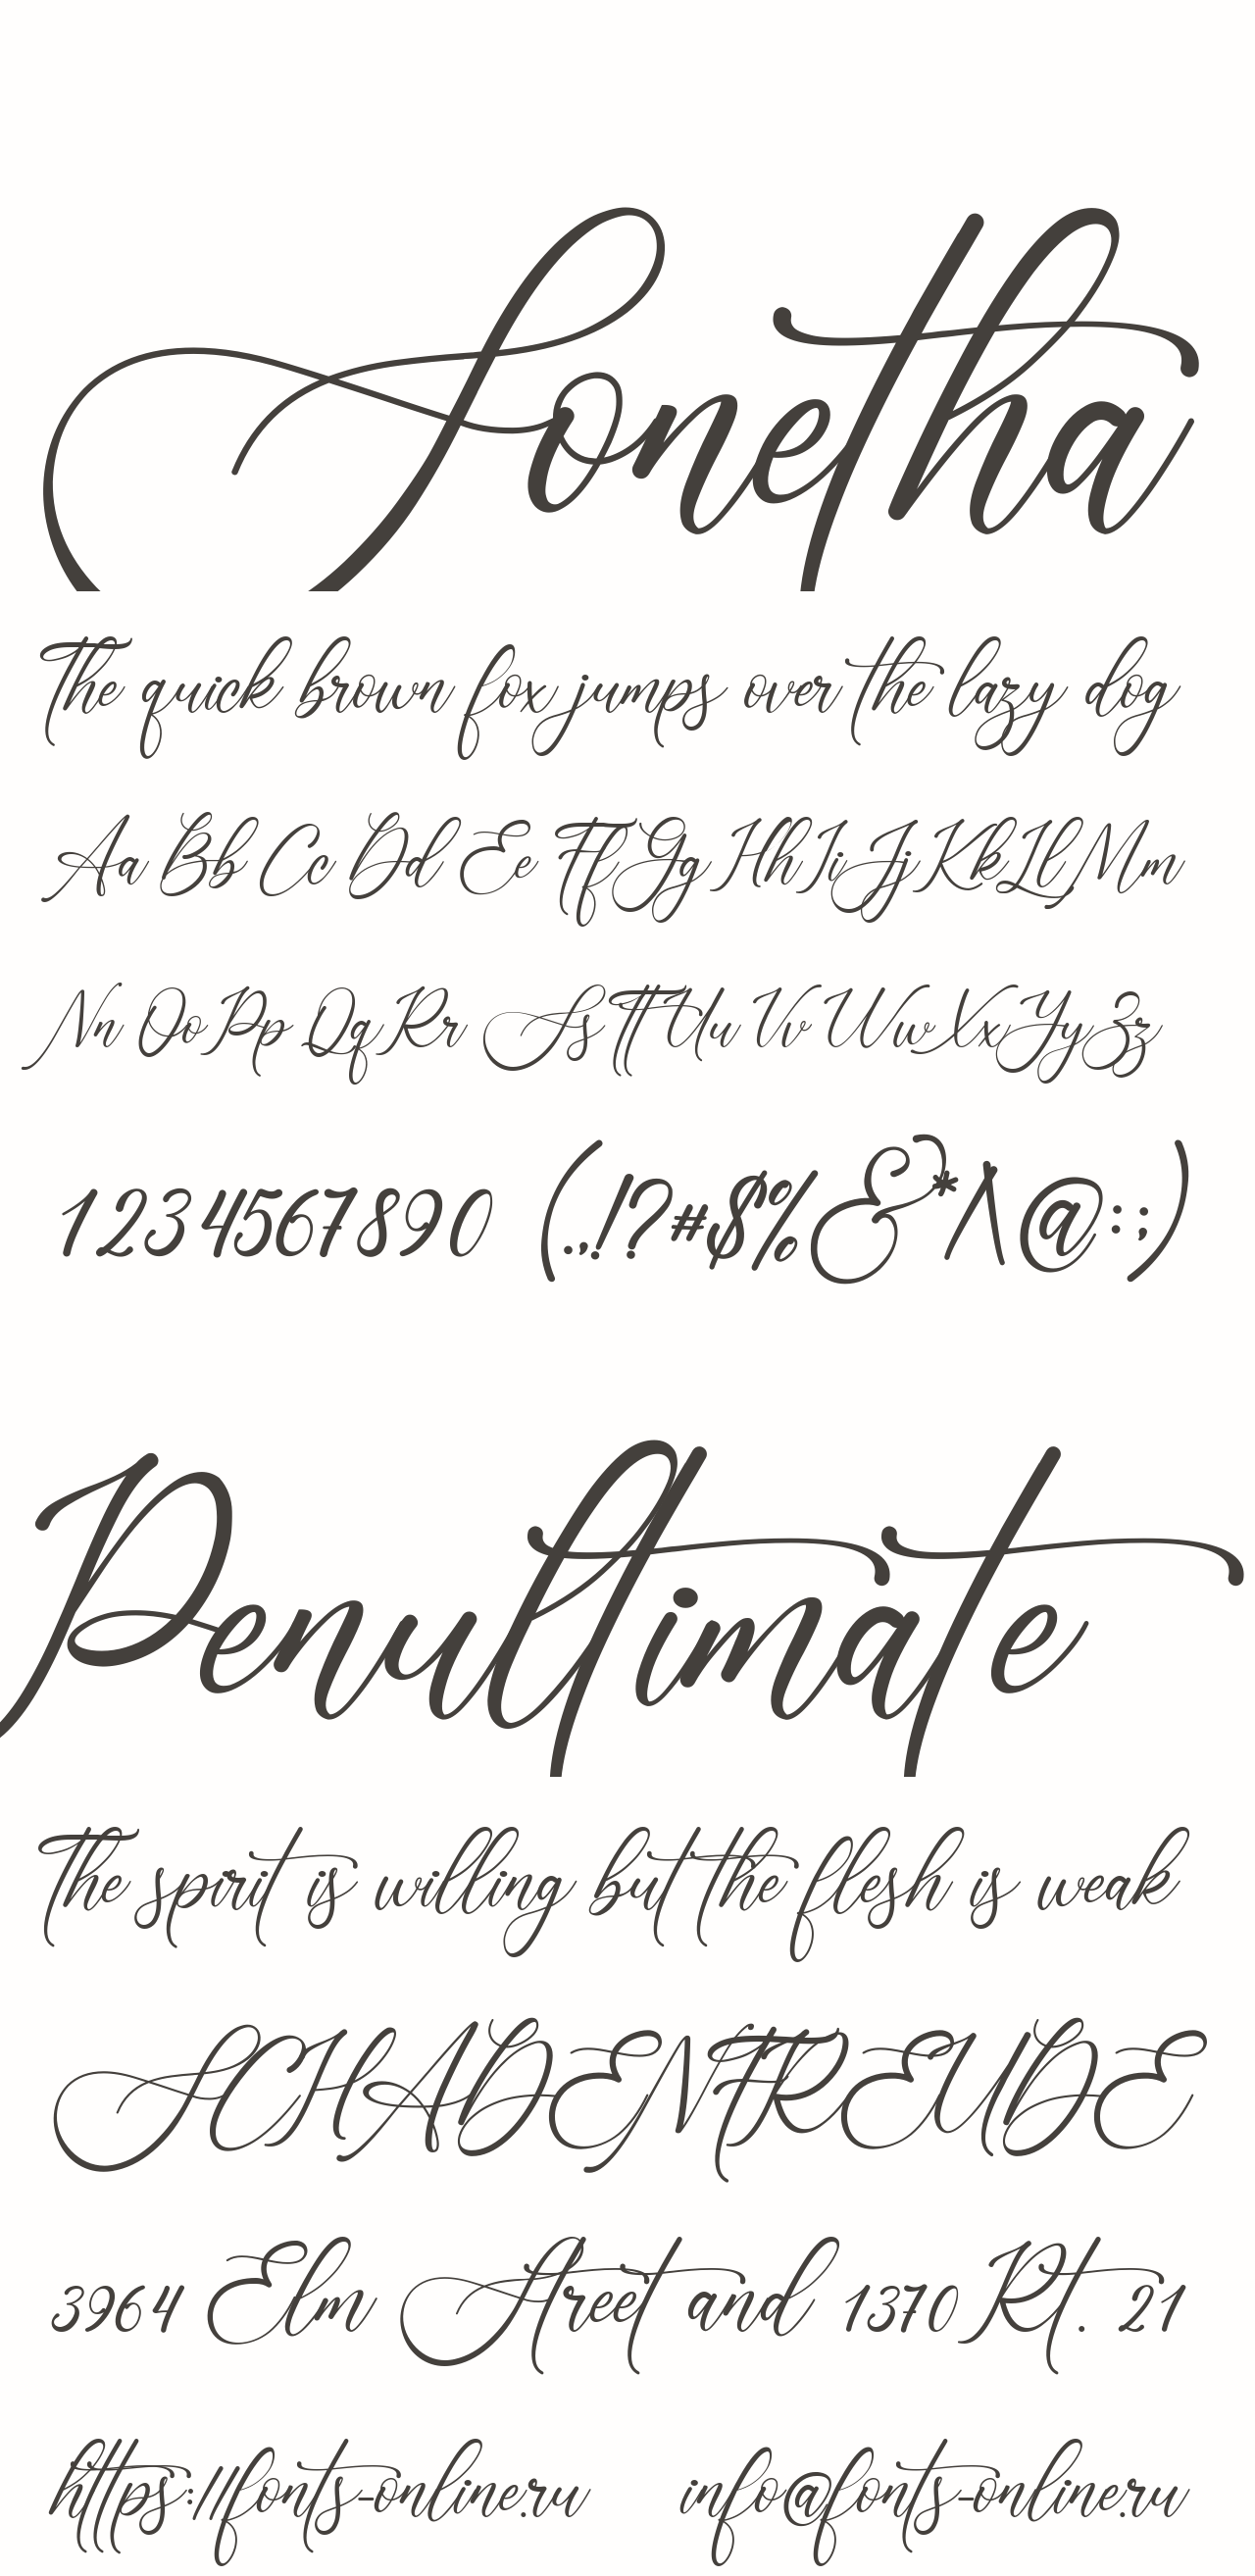 Sonetha
The quick brown fox jumps over the lazy dog
Aa Bb Cc Dd Ee Ff Gg Hh Ii Jj Kk Ll Mm
Nn Oo Pp Qq Rr Ss Tt Uu Vv Ww Xx Yy Zz
1234567890 (.,!?#$%&*/\@:;)
Penultimate
The spirit is willing but the flesh is weak
SCHADENFREUDE
3964 Elm Street and 1370 Rt. 21
https://fonts-online.ru info@fonts-online.ru